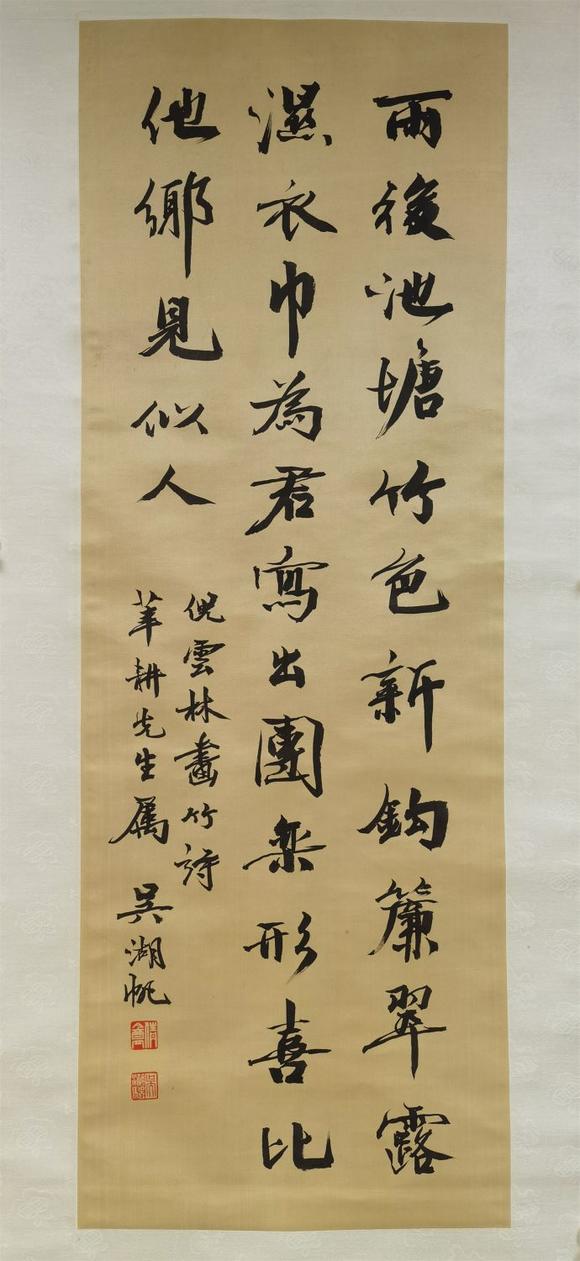 雨後池塘竹色新鈎簾翠露
濕衣巾為君寫出團栾形喜比
他鄉見似人
倪雲林畫竹詩
耕先生属 吳湖帆